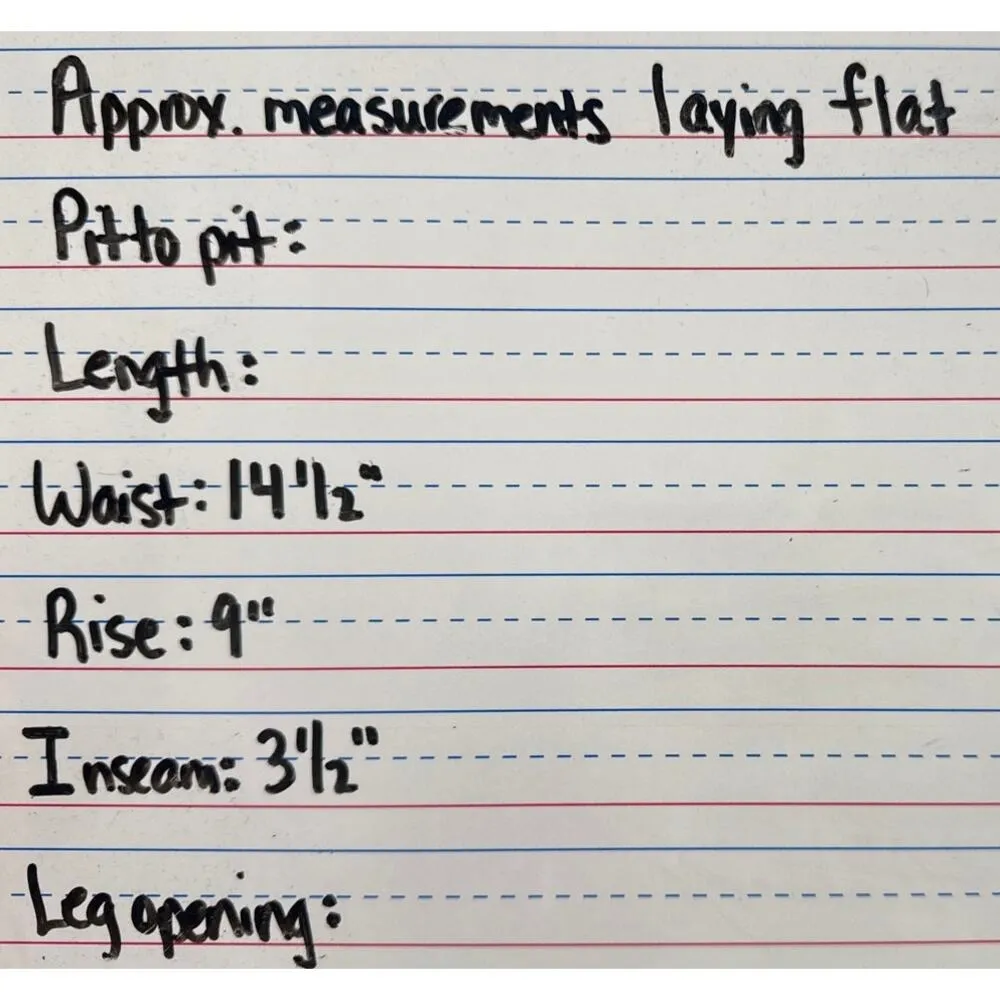 Approx. measurements laying flat
Pit to pit:
Length:
Waist: 14 1/2"
Rise: 9"
Inseam: 3 1/2"
Leg opening: